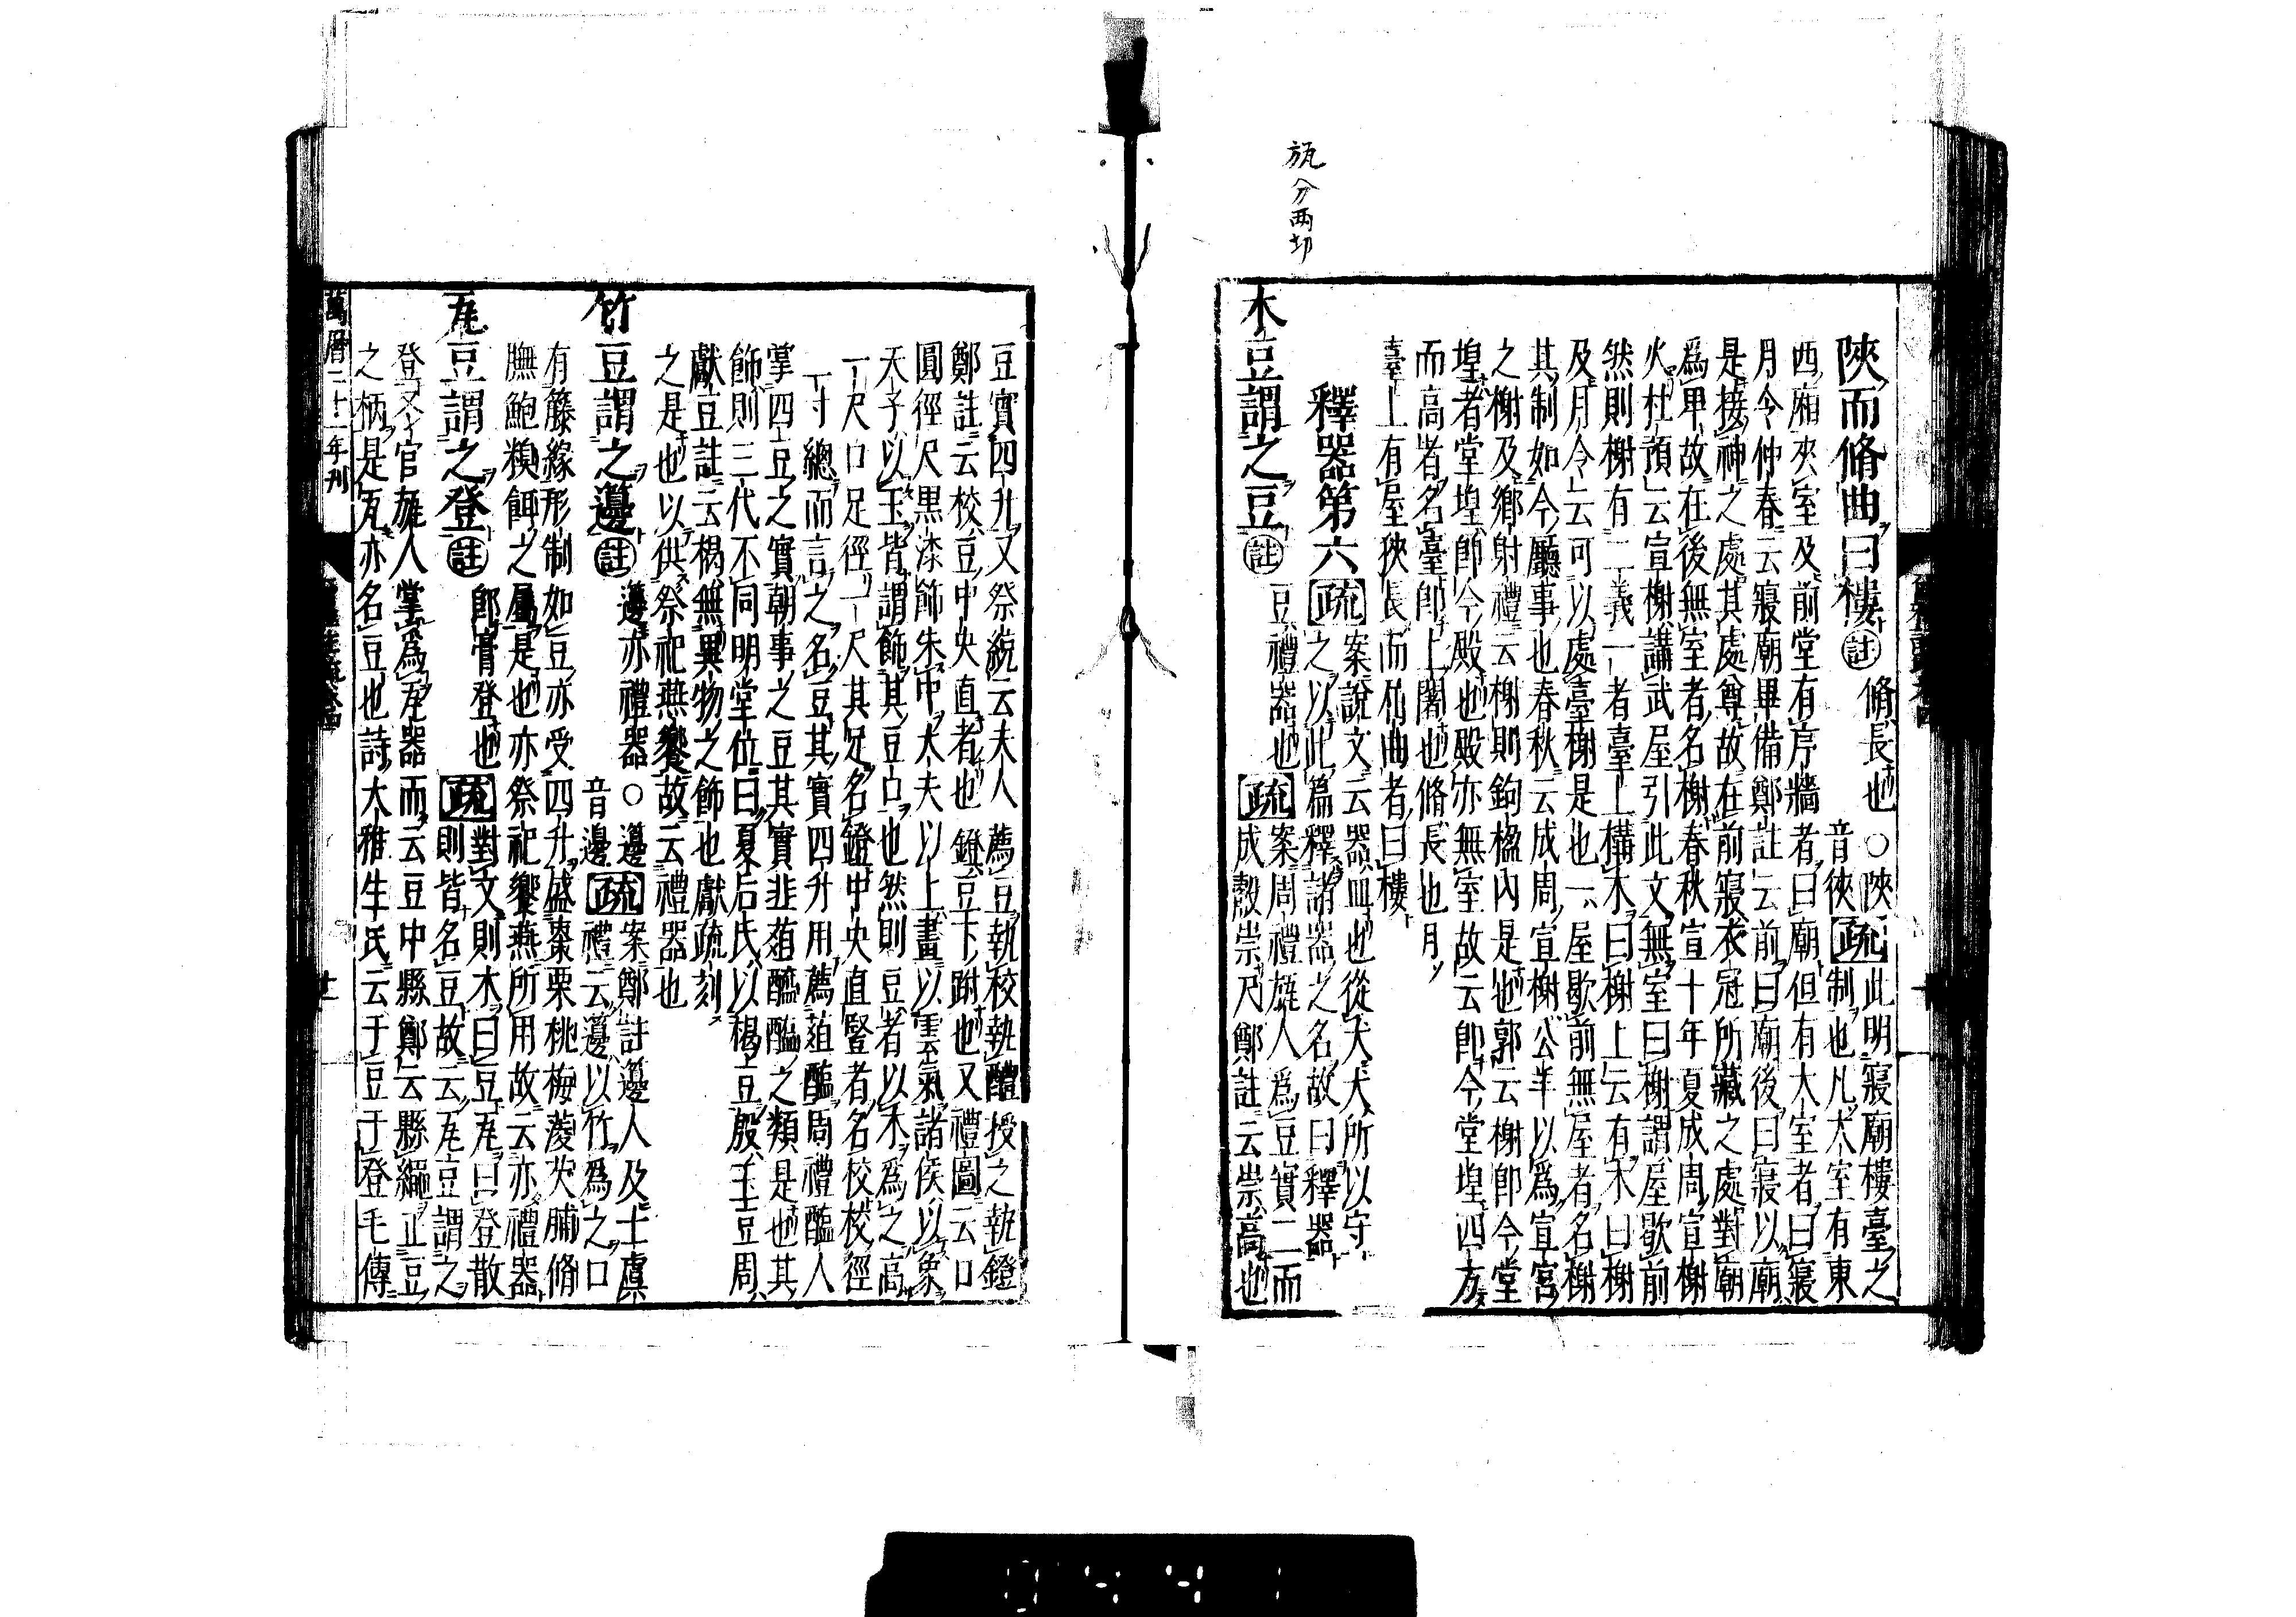 瓬分兩切
陜而脩曲曰樓註脩長也○陜音狹疏此明寢廟樓臺之制也凡大室有東
西廂夾室及前堂有序牆者曰廟但有大室者曰寢
月令仲春云寢廟畢備鄭註云前曰廟後曰寢以廟
是接神之處其處尊故在前寢衣冠所藏之處對廟
爲卑故在後無室者名榭春秋宣十年夏成周宣榭
火杜預云宣榭講武屋引此文無室曰榭謂屋歇前
然則榭有二義一者臺上構木曰榭上云有木曰榭
及月令云可以處臺榭是也一屋歇前無屋者名榭
其制如今廳事也春秋云成周宣榭公羊以爲宣宮
之榭及鄉射禮云榭則鉤楹內是也郭云榭即今堂
堭者堂堭即今殿也殿亦無室故云即今堂堭四方
而高者名臺即上闍也脩長也凡
臺上有屋狹長而屈曲者曰樓
釋器第六疏案說文云器皿也從犬犬所以守
之以此篇釋諸器之名故曰釋器
木豆謂之豆註豆禮器也疏案周禮瓬人爲豆實二而
成㲉崇尺鄭註云崇高也
豆實四升又祭統云夫人薦豆執校執醴授之執鐙
鄭註云校豆中央直者也鐙豆下跗也又禮圖云口
圓徑尺黑漆飾朱中大夫以上畫以雲氣諸侯以象
天子以玉皆謂飾其豆口也然則豆者以木爲之高
一尺口足徑一尺其足名鐙中央直豎者名校校徑
一寸總而言之名豆其實四升用薦葅醢周禮醢人
掌四豆之實朝事之豆其實韭葅醓醢之類是也其
飾則三代不同明堂位曰夏后氏以楬豆殷玉豆周
獻豆註云楬無異物之飾也獻疏刻
之是也以供祭祀燕饗故云禮器也
竹豆謂之籩註籩亦禮器○籩音邊疏案鄭註籩人及士虞
禮云籩以竹爲之口
有籐緣形制如豆亦受四升盛棗栗桃梅菱芡脯脩
膴鮑糗餌之屬是也亦祭祀饗燕所用故云亦禮器
瓦豆謂之登註即膏登也疏對文則木曰豆瓦曰登散
則皆名豆故云瓦豆謂之
登又官瓬人掌爲瓦器而云豆中縣鄭云縣繩正豆
之柄是瓦亦名豆也詩大雅生民云于豆于登毛傳
萬曆二十一年刊